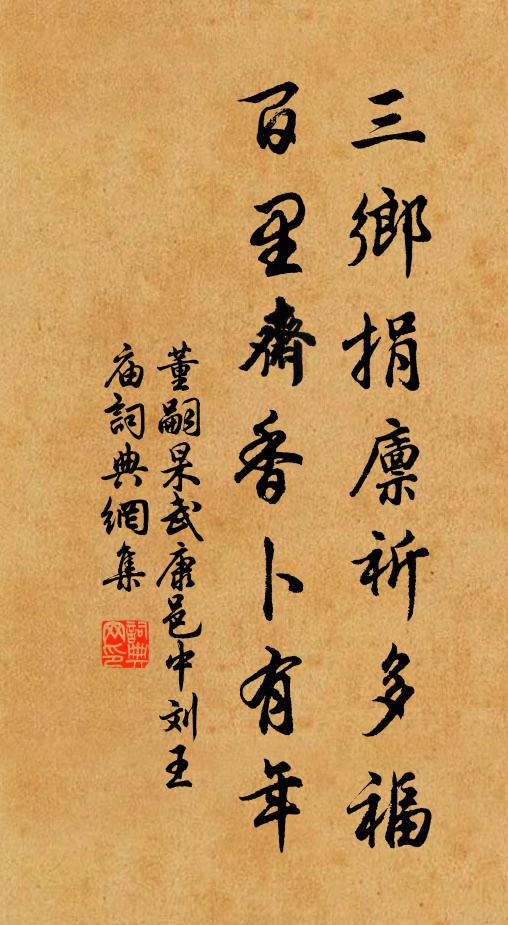 三鄉捐廪祈多福
百里齋香卜有年
董嗣杲武康邑中刘王
庙詞典網集
詞典
网印